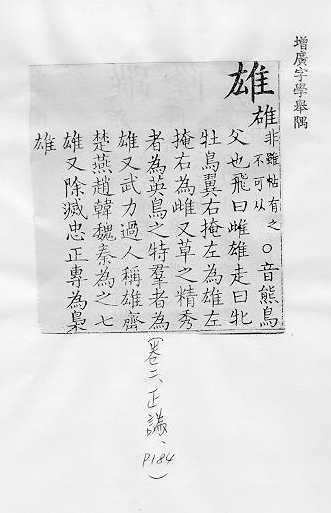 增廣字學舉隅
雄
雄非雖帖有之不可从○音熊鳥
父也飛曰雌雄走曰牝
牡鳥翼右掩左為雄左
掩右為雌又草之精秀
者為英鳥之特羣者為
雄又武力過人稱雄齊
楚燕趙韓魏秦為之七
雄又除滅忠正專為梟
雄
(卷二、正譌、
P184)